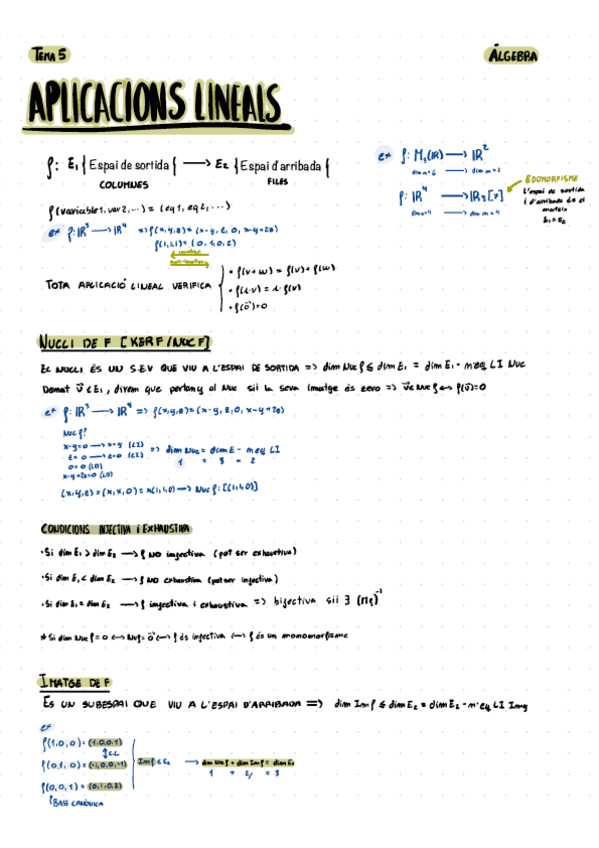 TEMA 5
ÀLGEBRA
APLICACIONS LINEALS
f: E₁ { Espai de sortida { ⟶ E₂ { Espai d'arribada {
COLUMNES FILES
f(variable1, var2, ...) = (eq1, eq2, ...)
ex f: IR³ ⟶ IR⁴ => f(x,y,z) = (x-y, z, 0, x-y+2z)
f(1,1,1) = (0,1,0,2)
ex f: M₂(IR) ⟶ IR²
f: IR⁴ ⟶ IR₃[x]
dim=4 dim=4
EDOMORFISME
L'espai de sortida
i d'arribada és el
mateix
E₁ = E₂
TOTA APLICACIÓ LINEAL VERIFICA
• f(v+w) = f(v) + f(w)
• f(λ·v) = λ·f(v)
• f(0⃗) = 0
NUCLI DE F [KERF/NUCF]
EL NUCLI ÉS UN S.E.V QUE VIU A L'ESPAI DE SORTIDA => dim Nuc f ≤ dim E₁ = dim E₁ - nº eq LI Nuc
Donat v⃗ ∈ E₁, direm que pertany al Nuc sii la seva imatge és zero => v⃗ ∈ Nuc f ⟷ f(v⃗) = 0
ex f: IR³ ⟶ IR⁴ => f(x,y,z) = (x-y, z, 0, x-y+2z)
Nuc f?
x-y=0 ⟶ x=y (LI)
z=0 ⟶ z=0 (LI)
0=0 (LD)
x-y+2z=0 (LD)
=> dim Nuc = dim E - nº eq LI
1 = 3 - 2
(x,y,z) = (x,x,0) = x(1,1,0) ⟶ Nuc f: [(1,1,0)]
CONDICIONS INJECTIVA i EXHAUSTIVA
• Si dim E₁ > dim E₂ ⟶ f NO injectiva (pot ser exhaustiva)
• Si dim E₁ < dim E₂ ⟶ f NO exhaustiva (pot ser injectiva)
• Si dim E₁ = dim E₂ ⟶ f injectiva i exhaustiva => bijectiva sii ∃ (Mf)⁻¹
* Si dim Nuc f = 0 ⟷ Nuc f = 0⃗ ⟷ f és injectiva ⟷ f és un monomorfisme
IMATGE DE F
ÉS UN SUBESPAI QUE VIU A L'ESPAI D'ARRIBADA => dim Im f ≤ dim E₂ = dim E₂ - nº eq LI Img
ex
f(1,0,0) = (1,0,0,1)
CL
f(0,1,0) = (-1,0,0,-1)
f(0,0,1) = (0,1,0,2)
Im f ∈ E₂ ⟶ dim Nuc f + dim Im f = dim E₁
1 + 2 = 3
BASE CANÒNICA